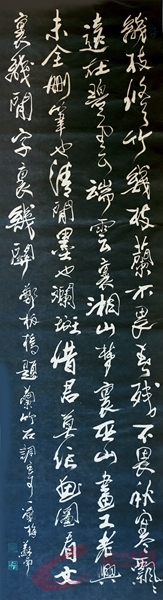 幾枝修竹幾枝蘭不畏春残不畏秋寒飄々
遠在碧雲端雲裏湘山夢裏巫山畫工老興
未全刪筆也清閒墨也斕斑借君莫作畫圖看文
裏幾閒字裏幾關 鄭板橋題蘭竹石調